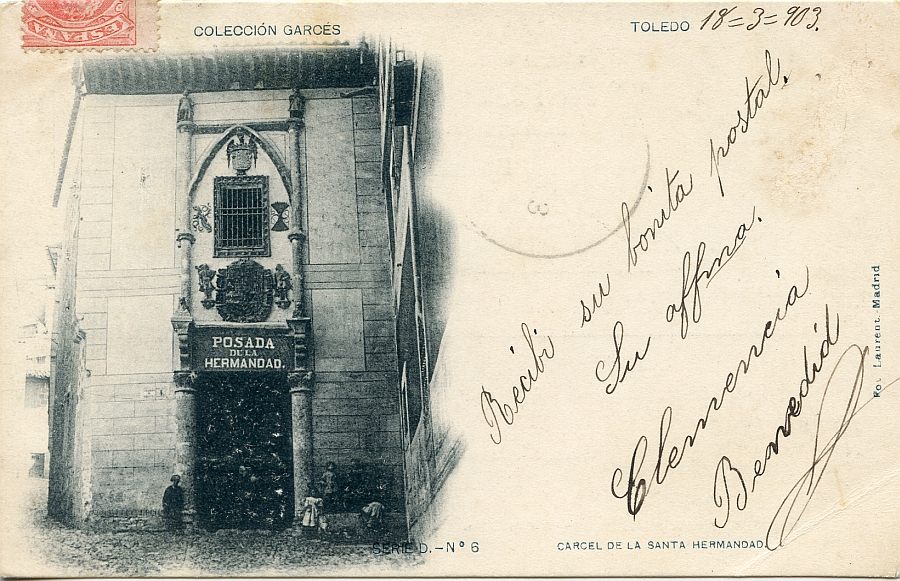 ESPAÑA
COLECCIÓN GARCÉS
TOLEDO 18=3=903.
Recibi su bonita postal.
Su affma.
Clemencia
Benedid
POSADA
DE LA
HERMANDAD.
Fot. Laurent. Madrid
SERIE D.-Nº 6
CARCEL DE LA SANTA HERMANDAD.
3